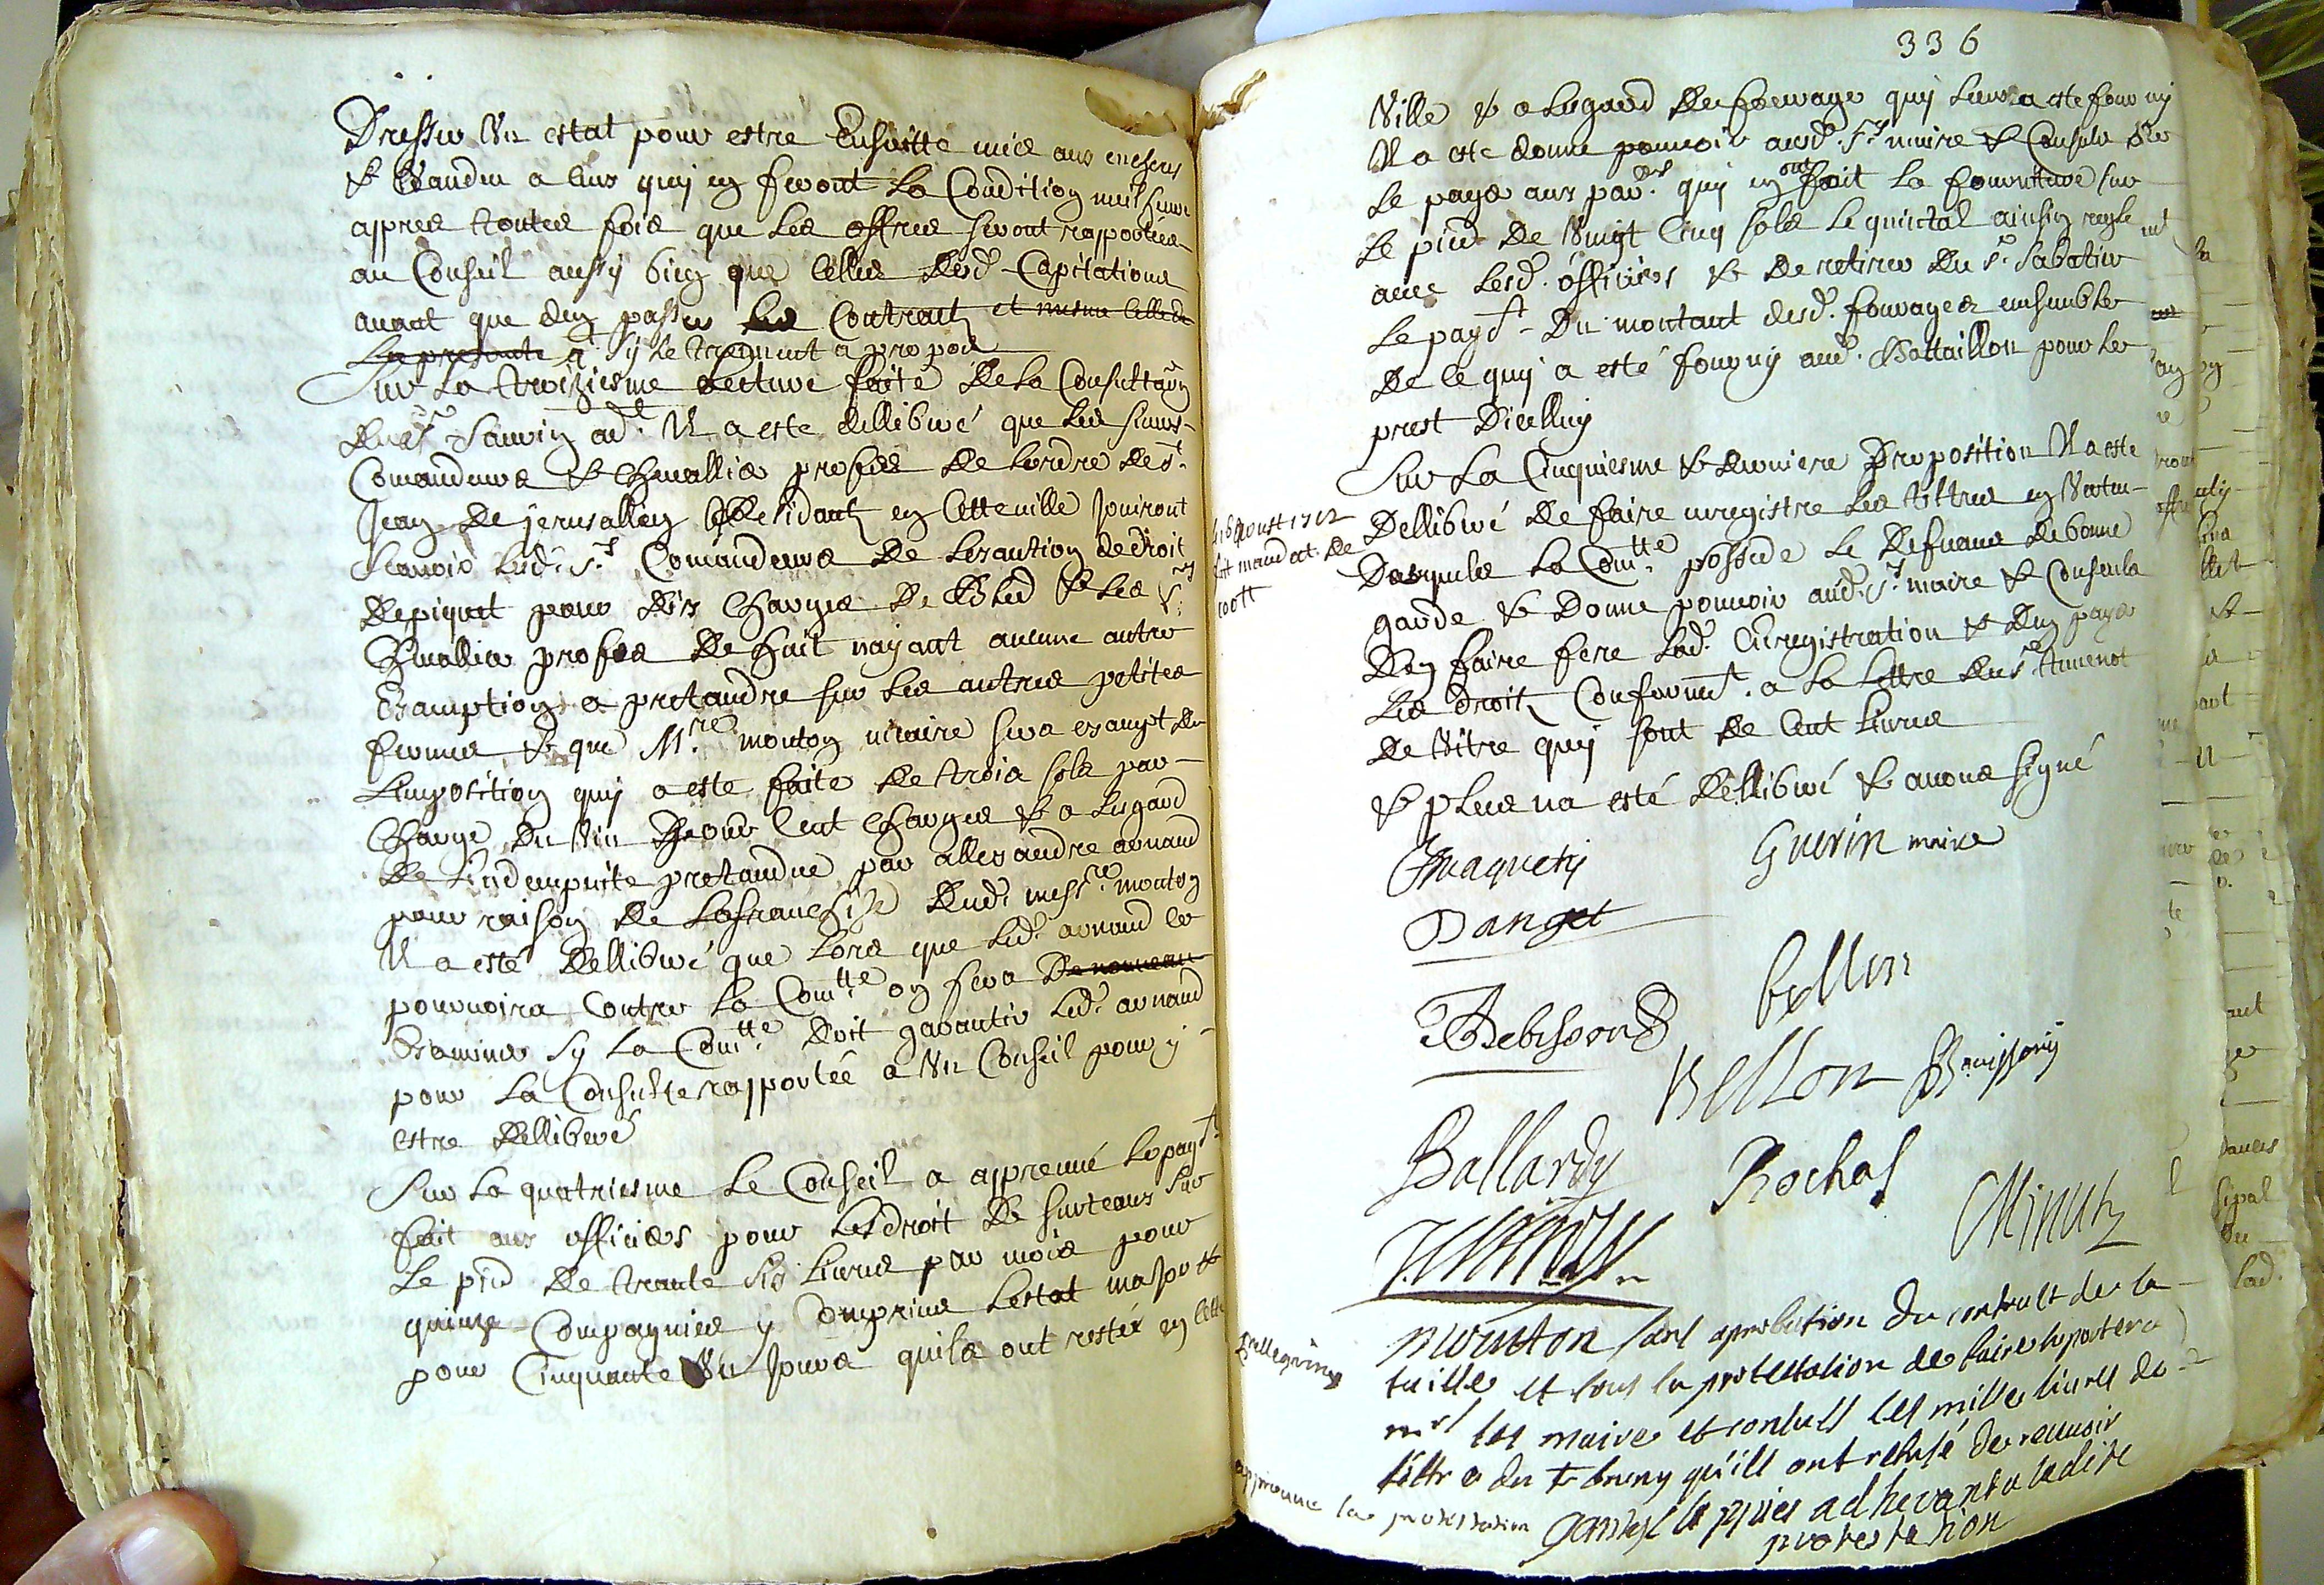 Dresser Un estat pour estre Ensuitte mis aux encheres
& Vandu a ceux quy en feront la Condition meilheure
appres touttes fois que les offres seront rapportées
au Conseil aussy bien que celles desd. Capitations
avant que den passer les Contraitz et mesme celle de
la presente at sy le treuvent a propos
Sur la troiziesme lecture faite de la Consultaôn
du Sr. Sauvin adt. Il a este delliberé que les sieurs
Comandeurs & Chevalliers profes de lordre de st.
Jean de jerusallem Residantz en Cette ville Jouiront
scavoir lesd. Srs Comandeurs de lexantion de droit
de piquet pour dix charges de Bled & les Srs.
Chevalliers profes de huit nayant aucune autre
Exemption a pretandre sur les autres petites
fermes & que Mre. mouton vicaire sera exampt de
Limposition quy a este faite de trois sols par
charge du vin pour Cent charges & a Legard
de Lindempnité pretandue par allexandre arnaud
pour raison de la franchize dudt. messre. mouton
Il a esté delliberé que Lors que led. arnaud ce
pourvoira Contre la Comtte. on fera De nouveau
Examiner sy la Comtte. doit garantir led. arnaud
pour la Consulte rapportée a Un Conseil pour y
estre dellibéré
Sur la quatriesme le Conseil a apreuvé le payt.
fait aux officiers pour le droit de surteaux sur
le pied de trante six livres par mois pour
quinze Compagnies y Comprins lestat major &
pour Cinquante Un Jours quils ont resté en Cette
336
Ville & a Legard des fourrage quy leur a este fourny
Il a este donné pouvoir ausd. Srs maire & Consuls de
le payer aux parers. quy en ont fait la fourniture sur
le pied de Vingt Cinq sols le quintal ainsin regle
avec lesd. officiers & de retirer du sr. Sabatier
le payt. du montant desd. fourrages ensemble
de ce quy a esté fourny aud. Battaillon pour le
prest Dicelluy
Sur la Cinquiesme & derniere Proposition Il a este
Dellibéré de faire enregistre les tiltres en Vertu
Desquels la Comtte. possede le Defrans de bonne
garde & Donne pouvoir ausd. Srs maire & Consuls
Den faire fere lad. Enregistration & den payer
les droitz Conformt. a la lettre du sr
de Vitre quy sont de Cent livres
& plus na esté dellibéré & avons signé
Le 16 Aoust 1712
fait mandat de
100 tt
Guerin maire
Danget
bellon
Bellon
Ballardy
Rochas
Minuty
mouton sans aprobation du contrult de la
taille et sous la protestation de faire suporter a
mrs les maire et consuls les mille livres de
du sr bruny qu'ils ont refusé de recevoir
Pellegrin
approuve la protestation
adherant a ladite
protestation